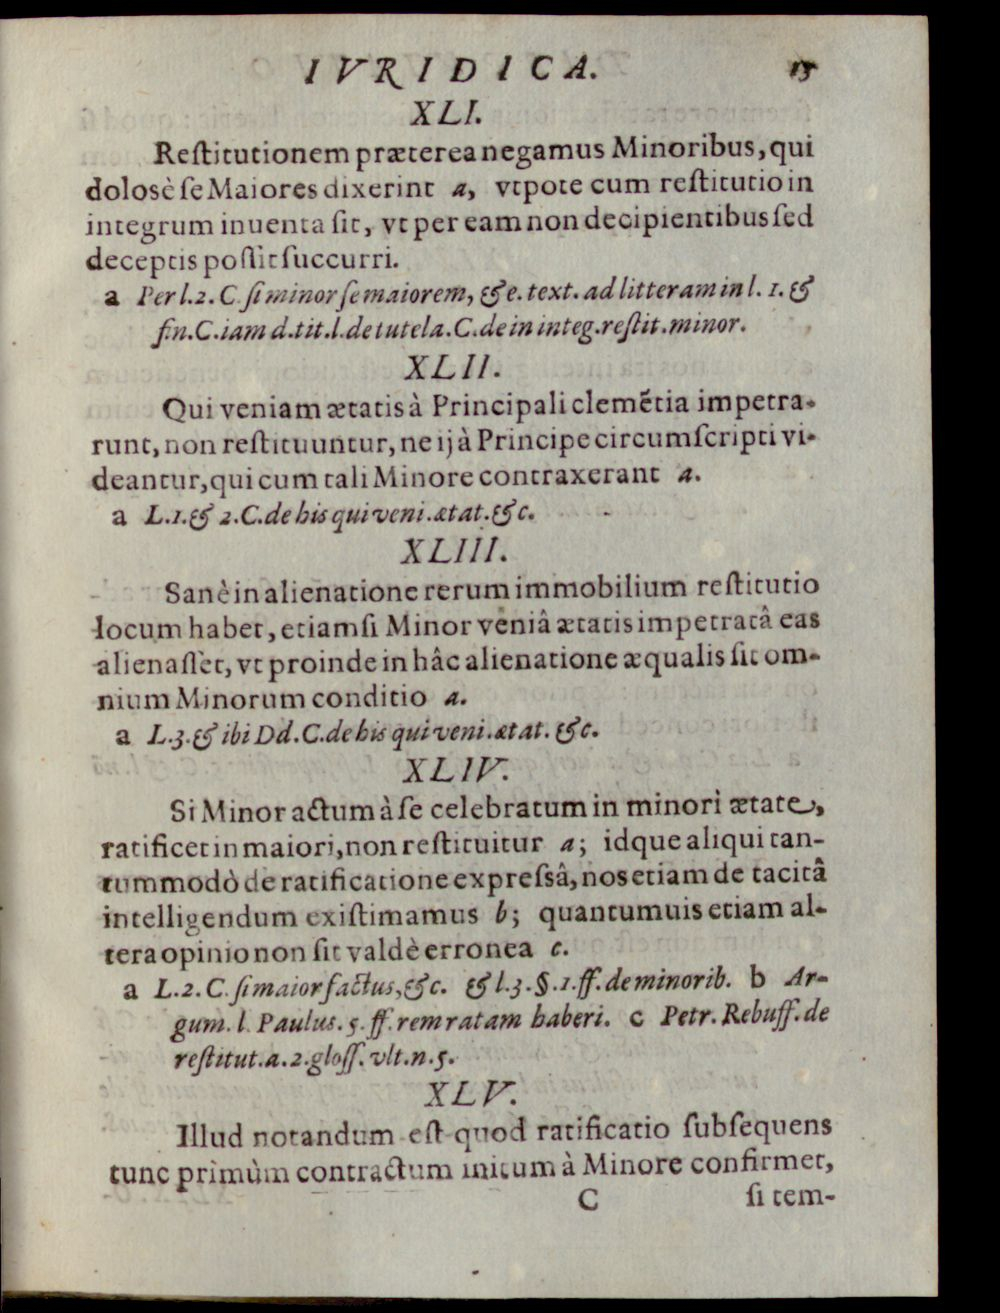 IVRIDICA. 15
XLI.
Reſtitutionem præterea negamus Minoribus, qui
dolosè ſe Maiores dixerint a, vtpote cum reſtitutio in
integrum inuenta ſit, vt per eam non decipientibus ſed
deceptis poſſit ſuccurri.
a Per l.2. C. ſi minor ſe maiorem, & e. text. ad litteram in l. 1. &
fin. C. iam d. tit. l. de tutela. C. de in integ. reſtit. minor.
XLII.
Qui veniam ætatis à Principali clemẽtia impetra-
runt, non reſtituuntur, ne ij à Principe circumſcripti vi-
deantur, qui cum tali Minore contraxerant a.
a L.1. & 2. C. de his qui veni. ætat. &c.
XLIII.
Sanè in alienatione rerum immobilium reſtitutio
locum habet, etiamſi Minor veniâ ætatis impetratâ eas
alienaſſet, vt proinde in hâc alienatione æqualis ſit om-
nium Minorum conditio a.
a L.3. & ibi Dd. C. de his qui veni. ætat. &c.
XLIV.
Si Minor actum à ſe celebratum in minori ætate,
ratificet in maiori, non reſtituitur a; idque aliqui tan-
tummodò de ratificatione expreſsâ, nos etiam de tacitâ
intelligendum exiſtimamus b; quantumuis etiam al-
tera opinio non ſit valdè erronea c.
a L.2. C. ſi maior factus, &c. & l.3. §. 1. ff. de minorib. b Ar-
gum. l. Paulus. 5. ff. rem ratam haberi. c Petr. Rebuff. de
reſtitut. a. 2. gloſſ. vlt. n. 5.
XLV.
Illud notandum eſt quod ratificatio ſubſequens
tunc primùm contractum initum à Minore confirmet,
C ſi tem-